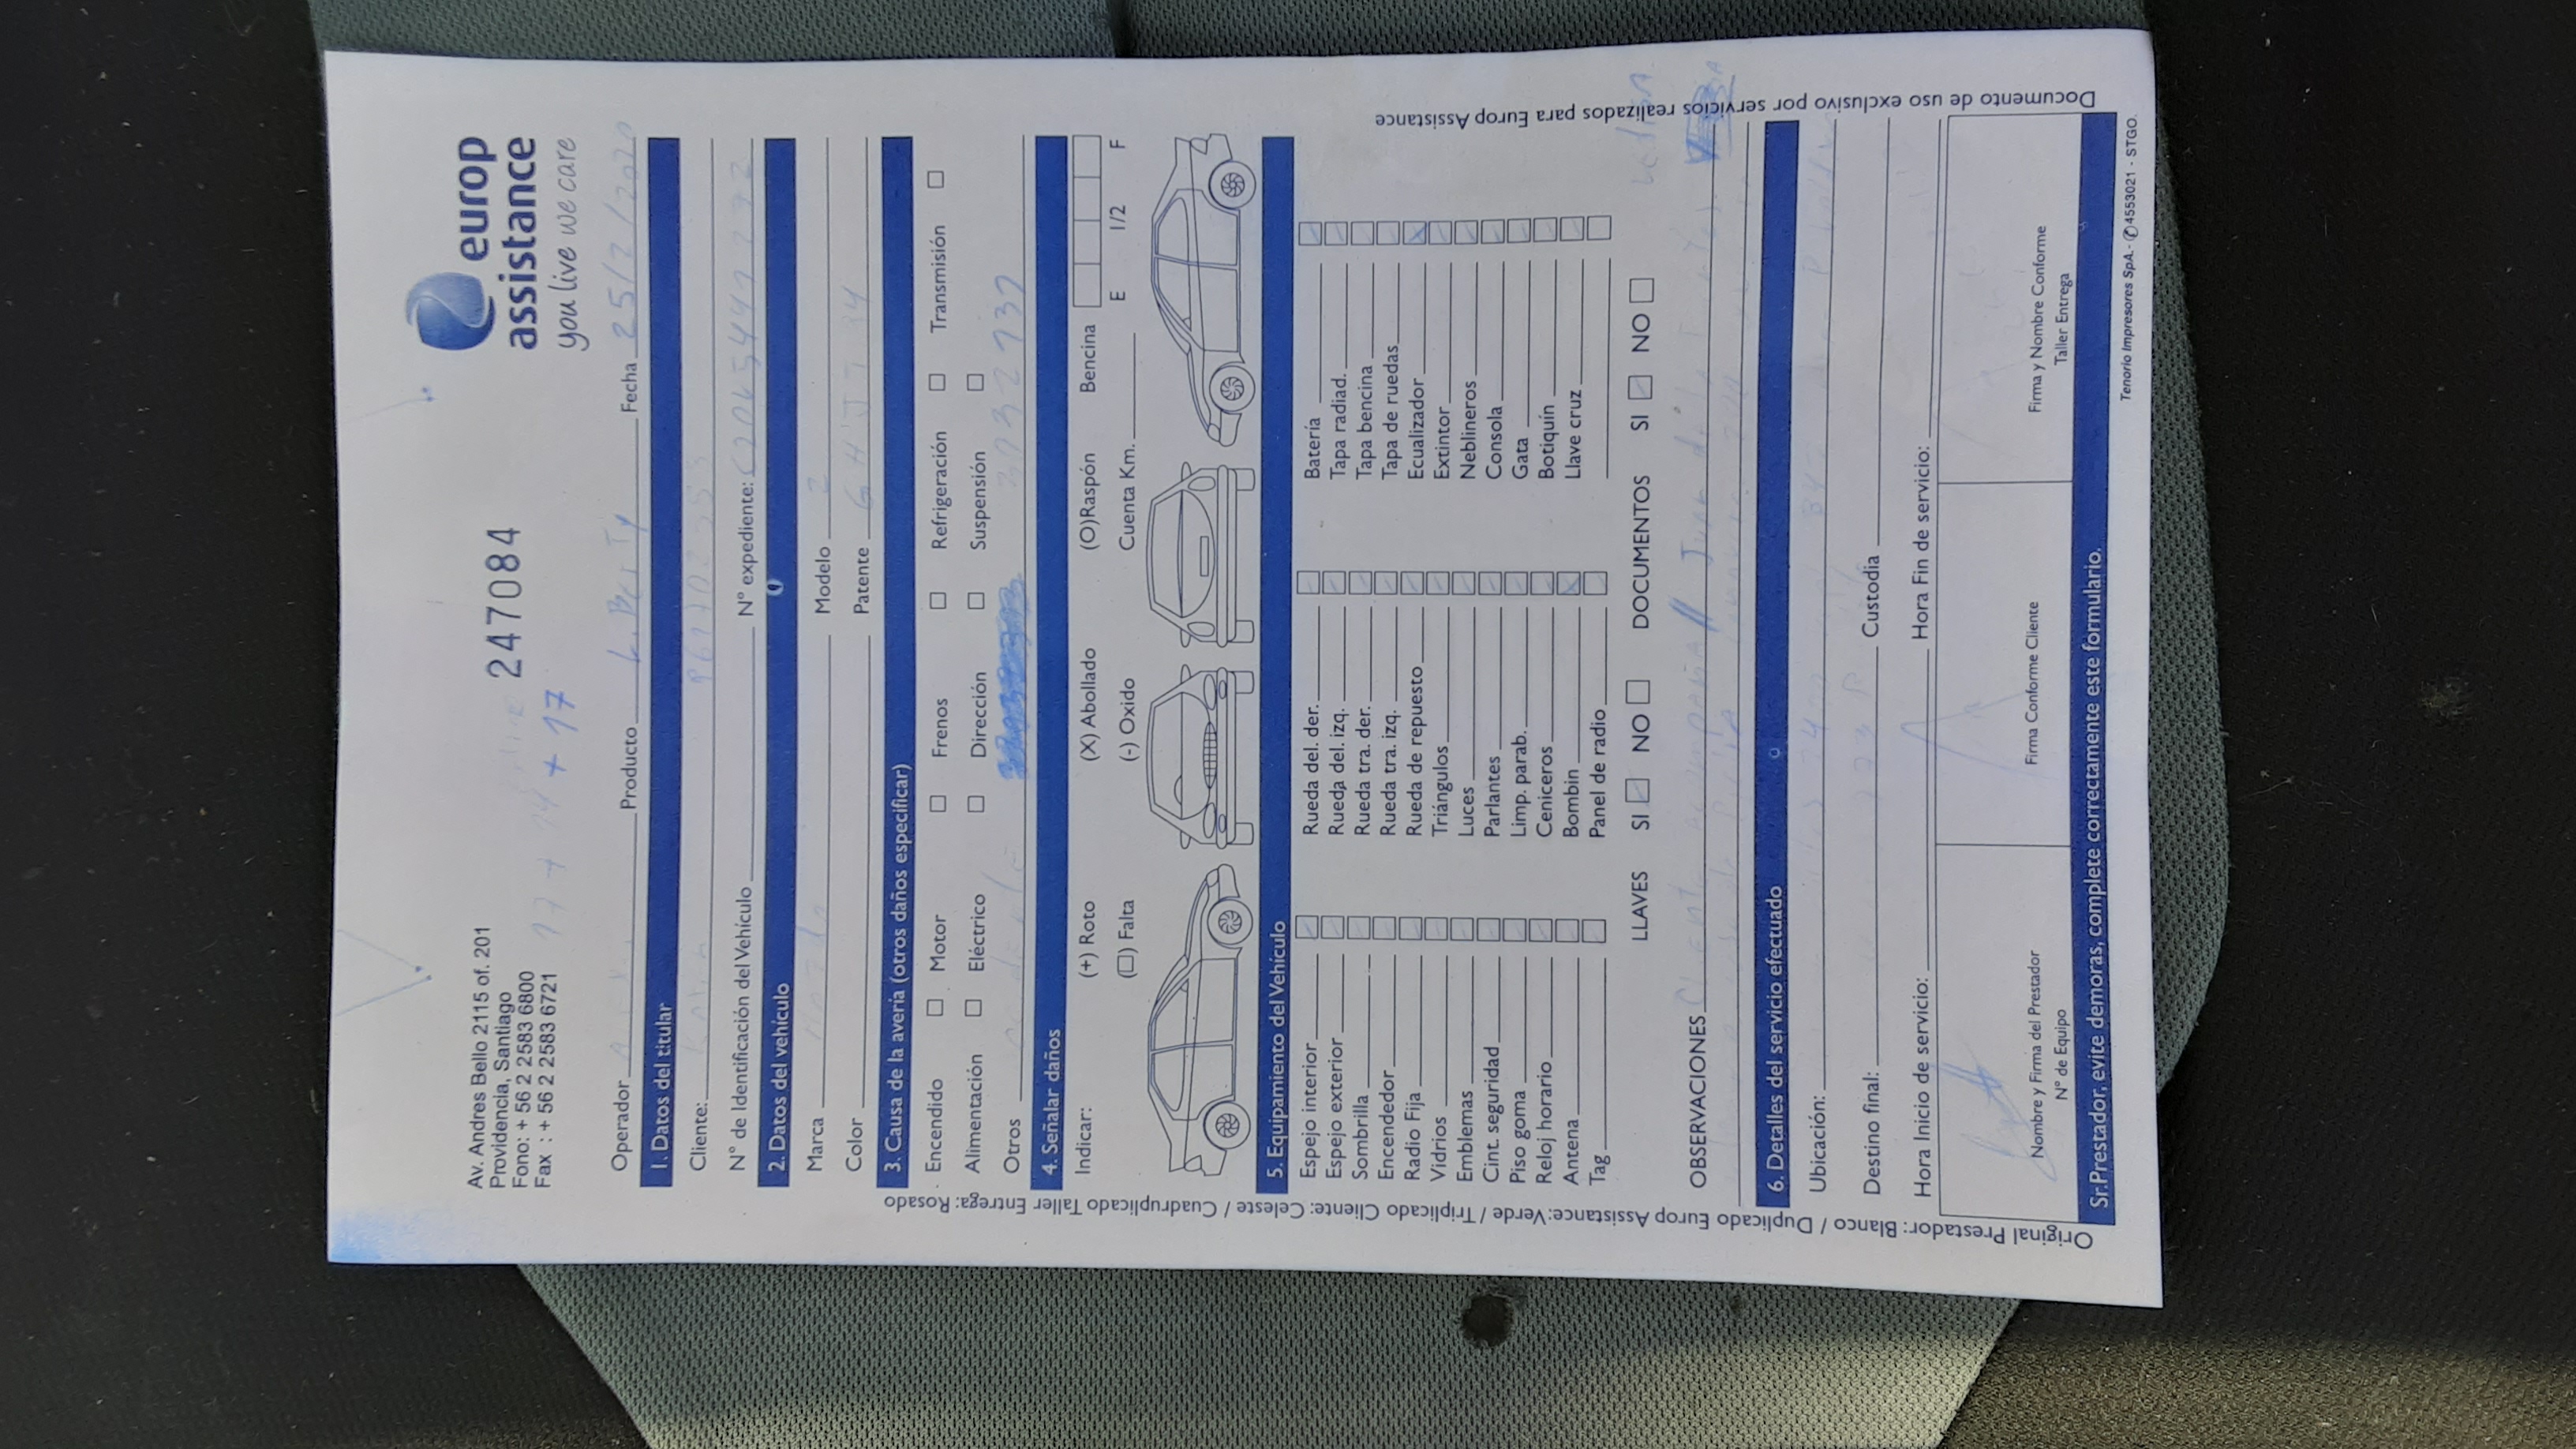 europ
assistance
you live we care
Av. Andres Bello 2115 of. 201
Providencia, Santiago
Fono: + 56 2 2583 6800
Fax : + 56 2 2583 6721
247084
+ 17
Operador Producto Fecha 25/2/2020
1. Datos del titular
Cliente:
N° de Identificación del Vehículo N° expediente:
2. Datos del vehículo
Marca Modelo
Color Patente
3. Causa de la avería (otros daños especificar)
Encendido Motor Frenos Refrigeración Transmisión
Alimentación Eléctrico Dirección Suspensión
Otros
4. Señalar daños
Indicar: (+) Roto (X) Abollado (O)Raspón Bencina
(□) Falta (-) Oxido Cuenta Km. E 1/2 F
5. Equipamiento del Vehículo
Espejo interior Rueda del. der. Batería
Espejo exterior Rueda del. izq. Tapa radiad.
Sombrilla Rueda tra. der. Tapa bencina
Encendedor Rueda tra. izq. Tapa de ruedas
Radio Fija Rueda de repuesto Ecualizador
Vidrios Triángulos Extintor
Emblemas Luces Neblineros
Cint. seguridad Parlantes Consola
Piso goma Limp. parab. Gata
Reloj horario Ceniceros Botiquín
Antena Bombin Llave cruz
Tag Panel de radio
LLAVES SI NO DOCUMENTOS SI NO
OBSERVACIONES
6. Detalles del servicio efectuado
Ubicación:
Destino final: Custodia
Hora Inicio de servicio: Hora Fin de servicio:
Nombre y Firma del Prestador Firma Conforme Cliente Firma y Nombre Conforme
N° de Equipo Taller Entrega
Sr.Prestador, evite demoras, complete correctamente este formulario.
Tenorio Impresores SpA. - ✆4553021 - STGO.
Original Prestador: Blanco / Duplicado Europ Assistance:Verde / Triplicado Cliente: Celeste / Cuadruplicado Taller Entrega: Rosado
Documento de uso exclusivo por servicios realizados para Europ Assistance